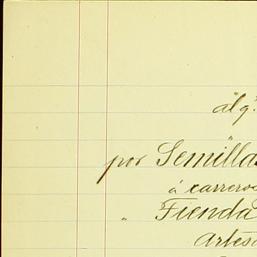 álg.
por Semilla
á carreros
" Tienda
Artes